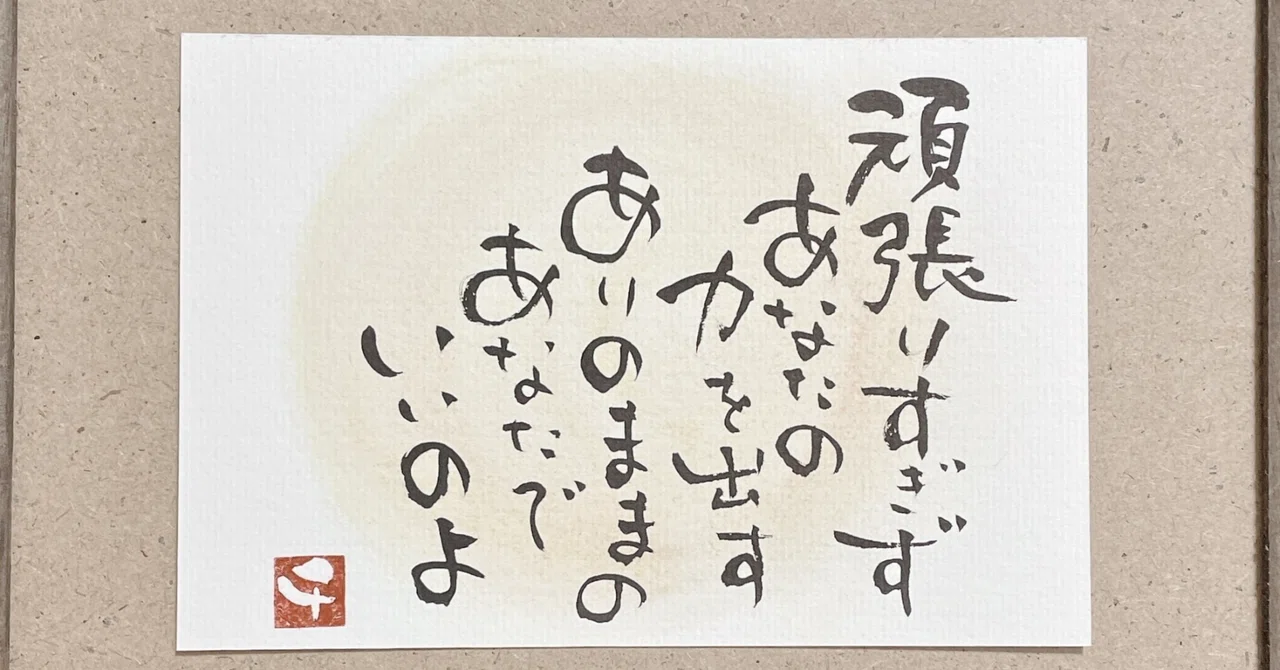 頑張りすぎず
あなたの
力を出す
ありのままの
あなたで
いいのよ